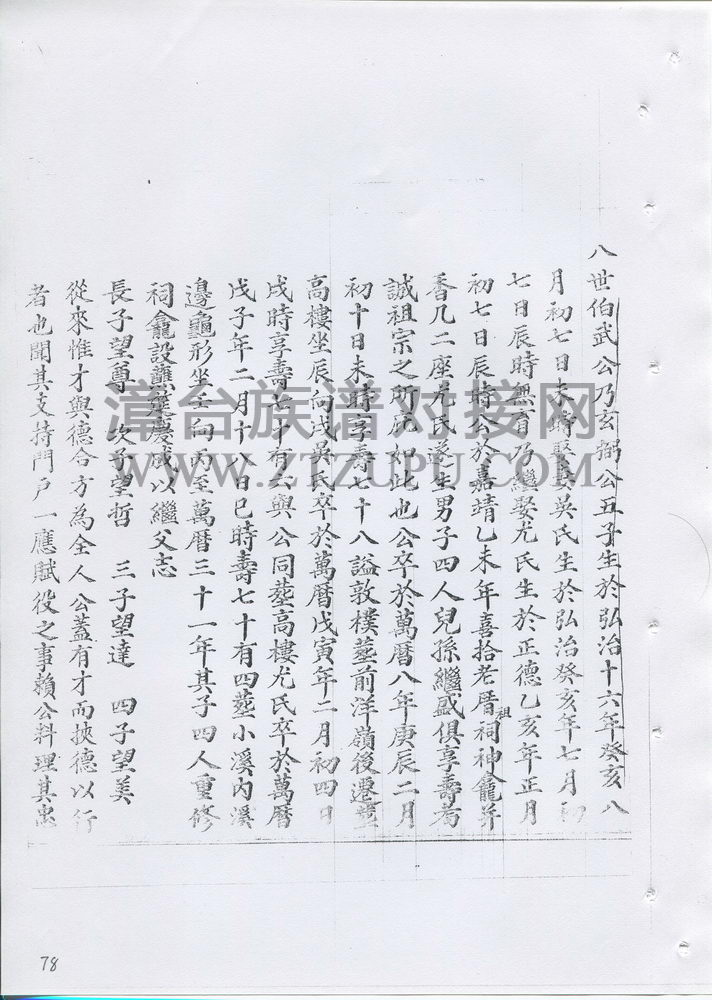 八世伯武公乃玄弼公五子生於弘治十六年癸亥八
月初七日未時娶吳氏生於弘治癸亥年七月初
七日辰時無有乃繼娶尤氏生於正德乙亥年正月
初七日辰時公於嘉靖乙未年喜拾老厝祖祠神龕并
香几二座尤氏遂生男子四人兒孫繼盛俱享壽者
誠祖宗之所庇如此也公卒於萬曆八年庚辰二月
初十日未時享壽七十八謚敦樸塟前洋嶺後遷塟
高樓坐辰向戌吳氏卒於萬曆戊寅年二月初四日
戌時享壽七十有六與公同塟高樓尤氏卒於萬曆
戊子年二月十八日巳時壽七十有四塟小溪內溪
邊龜形坐壬向丙至萬曆三十一年其子四人重修
祠龕設醮慶成以繼父志
長子望尊 次子望哲 三子望達 四子望美
從來惟才與德合方為全人公蓋有才而挾德以行
者也聞其支持門戶一應賦役之事賴公料理其忠
漳台族谱对接网
WWW.ZTZUPU.COM
78